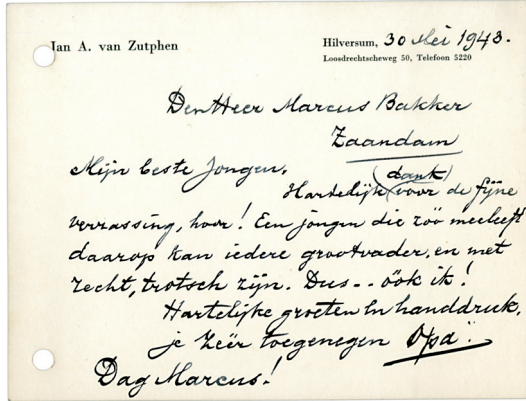 Jan A. van Zutphen
Hilversum, 30 Mei 1943.
Loosdrechtscheweg 50, Telefoon 5220
Den Heer Marcus Bakker
Zaandam
Mijn beste Jongen,
(dank)
Hartelijk voor de fijne
verrassing, hoor! Een jongen die zóó meeleeft
daarop kan iedere grootvader, en met
recht, trotsch zijn. Dus -- óók ik!
Hartelijke groeten en handdruk,
je zéér toegenegen "Opa".
Dag Marcus!